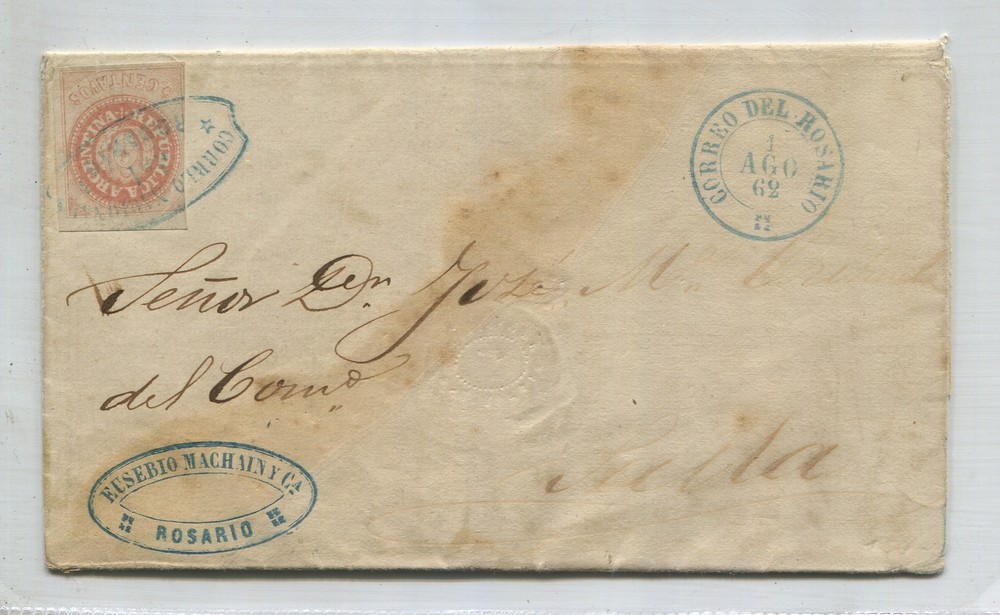 5 CENTAVOS
REPUBLICA ARGENTINA
CORREO
CORREO DEL ROSARIO
1
AGO
62
Señor Dn. José Ma
del Como
Salta
EUSEBIO MACHAIN Y CA
ROSARIO